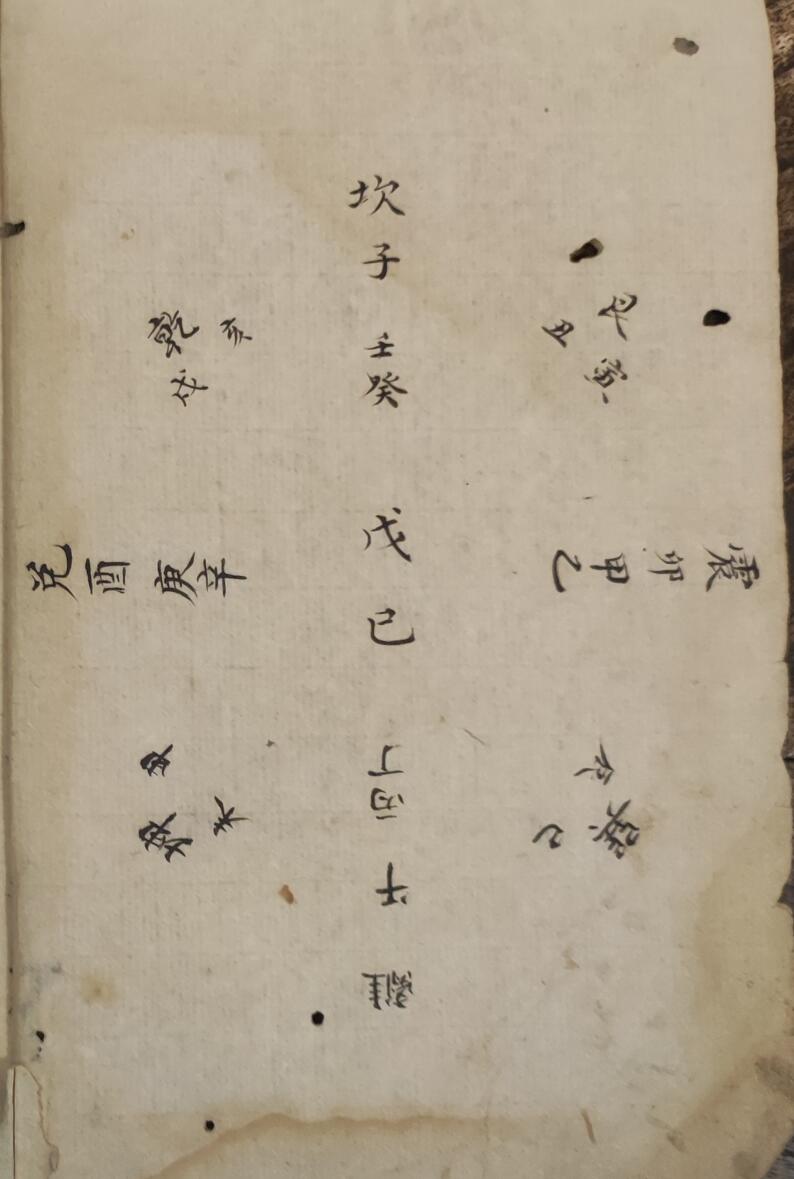 坎子壬癸
丑艮寅
震卯甲乙
巽巳
離午丙丁
坤未
兌酉庚辛
乾亥
戊己